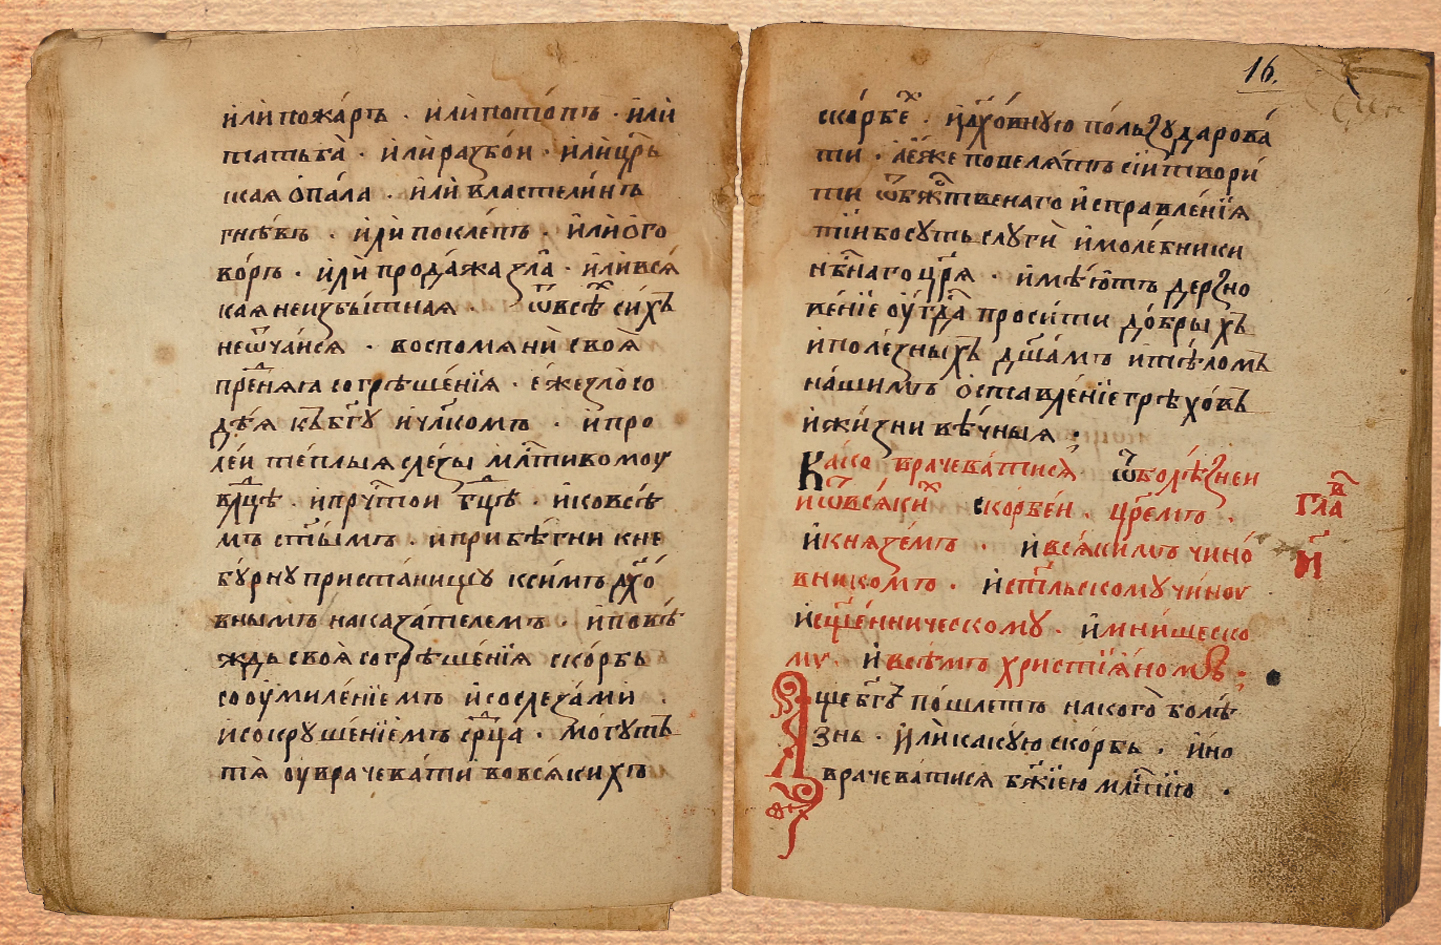 и҆лѝ пожа́ръ · и҆лѝ пото́пъ · и҆лѝ
татьба̀ · и҆лѝ разбо́и · и҆лѝ цр҃ь
ская ѻ҆па́ла · и҆лѝ властели́нъ
гнѣ́въ · и҆лѝ покле́пъ · и҆лѝ ѻ҆го
во́ръ · и҆лѝ прода́жа зла̀ · и҆лѝ вся́
кая неизбы́тная · ѿ всѣ́х си́хъ
не ѿча́ися · воспомянѝ своя̀
пре́дняга согрѣше́нїя · е҆́же зло со
дѣ́я къ бг҃у и чл҃комъ · и҆ про
ле́и те́плыя сле́зы мл҃тивомоу
влⷣцѣ · и҆ прⷱ҇тои бцⷣѣ · и҆ ко всѣ
мъ ст҃ы́мъ · и҆ прибѣ́гни к не
бу́рну приста́нищу к си́мъ дх҃о́
внымъ наказа́телемъ · и҆ повѣ́
ждь своя̀ согрѣше́нїя ско́рбь
со оу҆миле́нїемъ и҆ со слеза́ми ·
и҆ сокруше́нїемъ срⷣца · мо́гутъ
тя̀ оу҆врачева́ти во вся́кихъ
16.
ско́рбе́х · и҆ дх҃о́вную по́льзу дарова́
ти · а҆ е҆́же повеля́тъ сїѝ твори́
ти ѿ бж҃твенаго и҆справле́нїя
ті́и бо су́ть слугѝ и҆ моле́бники
нбⷭ҇наго цр҃я̀ · и҆мѣ́ютъ дерзно
ве́нїе оу҆ гдⷭ҇а проси́ти до́брыхъ
и҆ поле́зныхъ дш҃а́мъ и҆ тѣло́мъ
на́шимъ ѻ҆ставле́нїе грѣхо́въ
и҆ жи́зни вѣ́чныя ⁘
Ка́ко врачева́тися ѿ болѣ́знеи
и ѿ вся́ких ско́рбе́и · цр҃е́мъ ·
и҆ кня́земъ · и҆ вся́кимъ чино́
вникомъ · и҆ ст҃льскому чи́ноу
и҆ сщ҃е́нническому · и҆ мни́шеско
му · и҆ всѣ́мъ христїя́номъ ⁘
гла́в
и҃
Аще бг҃ъ по́шлетъ на кого̀ болѣ́
знь · и҆лѝ каку́ю ско́рбь · и҆но
врачева́тися бж҃їею мл҃тїю ·